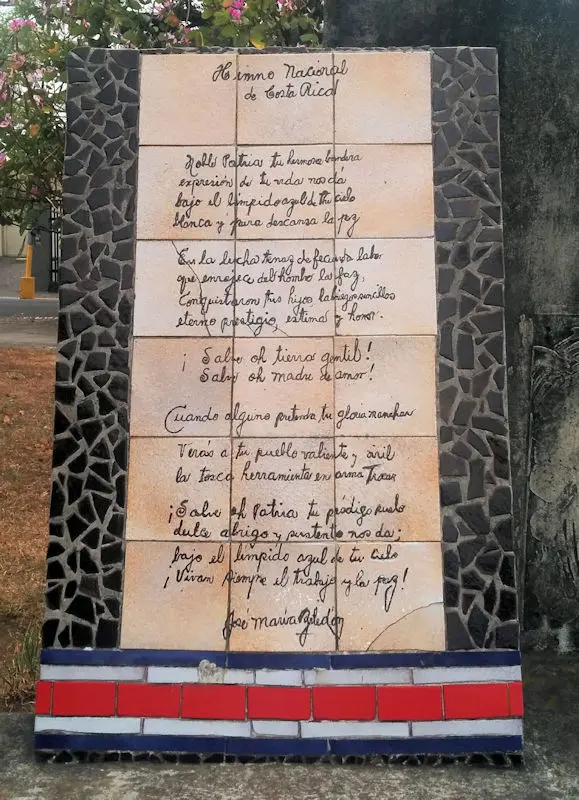 Himno Nacional
de Costa Rica
Noble Patria tu hermosa bandera
expresión de tu vida nos dá
bajo el límpido azul de tu cielo
blanca y pura descanza la paz
En la lucha tenaz de fecunda labor
que enrojece del hombre la faz,
Conquistaron tus hijos labriegos sencillos
eterno prestigio, estima y honor.
¡Salve oh tierra gentil!
Salve oh madre de amor!
Cuando alguno pretenda tu gloria manchar
Verás a tu pueblo valiente y viril
la tosca herramienta en arma Trocar
¡Salve oh Patria tu pródigo suelo
dulce abrigo y sustento nos da;
bajo el límpido azul de tu cielo
¡Vivan siempre el trabajo y la paz!
José María Zeledón